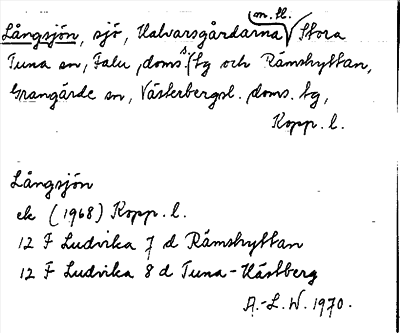 m. fl.
Långsjön, sjö, Halvarsgårdarna Stora
Tuna sn, Falu doms. tg och Rämshyttan,
Grangärde sn, Västerbergsl. doms. tg,
Kopp. l.
Långsjön
ek (1968) Kopp. l.
12 F Ludvika 7 d Rämshyttan
12 F Ludvika 8 d Tuna-Hästberg
A.-L. W. 1970.